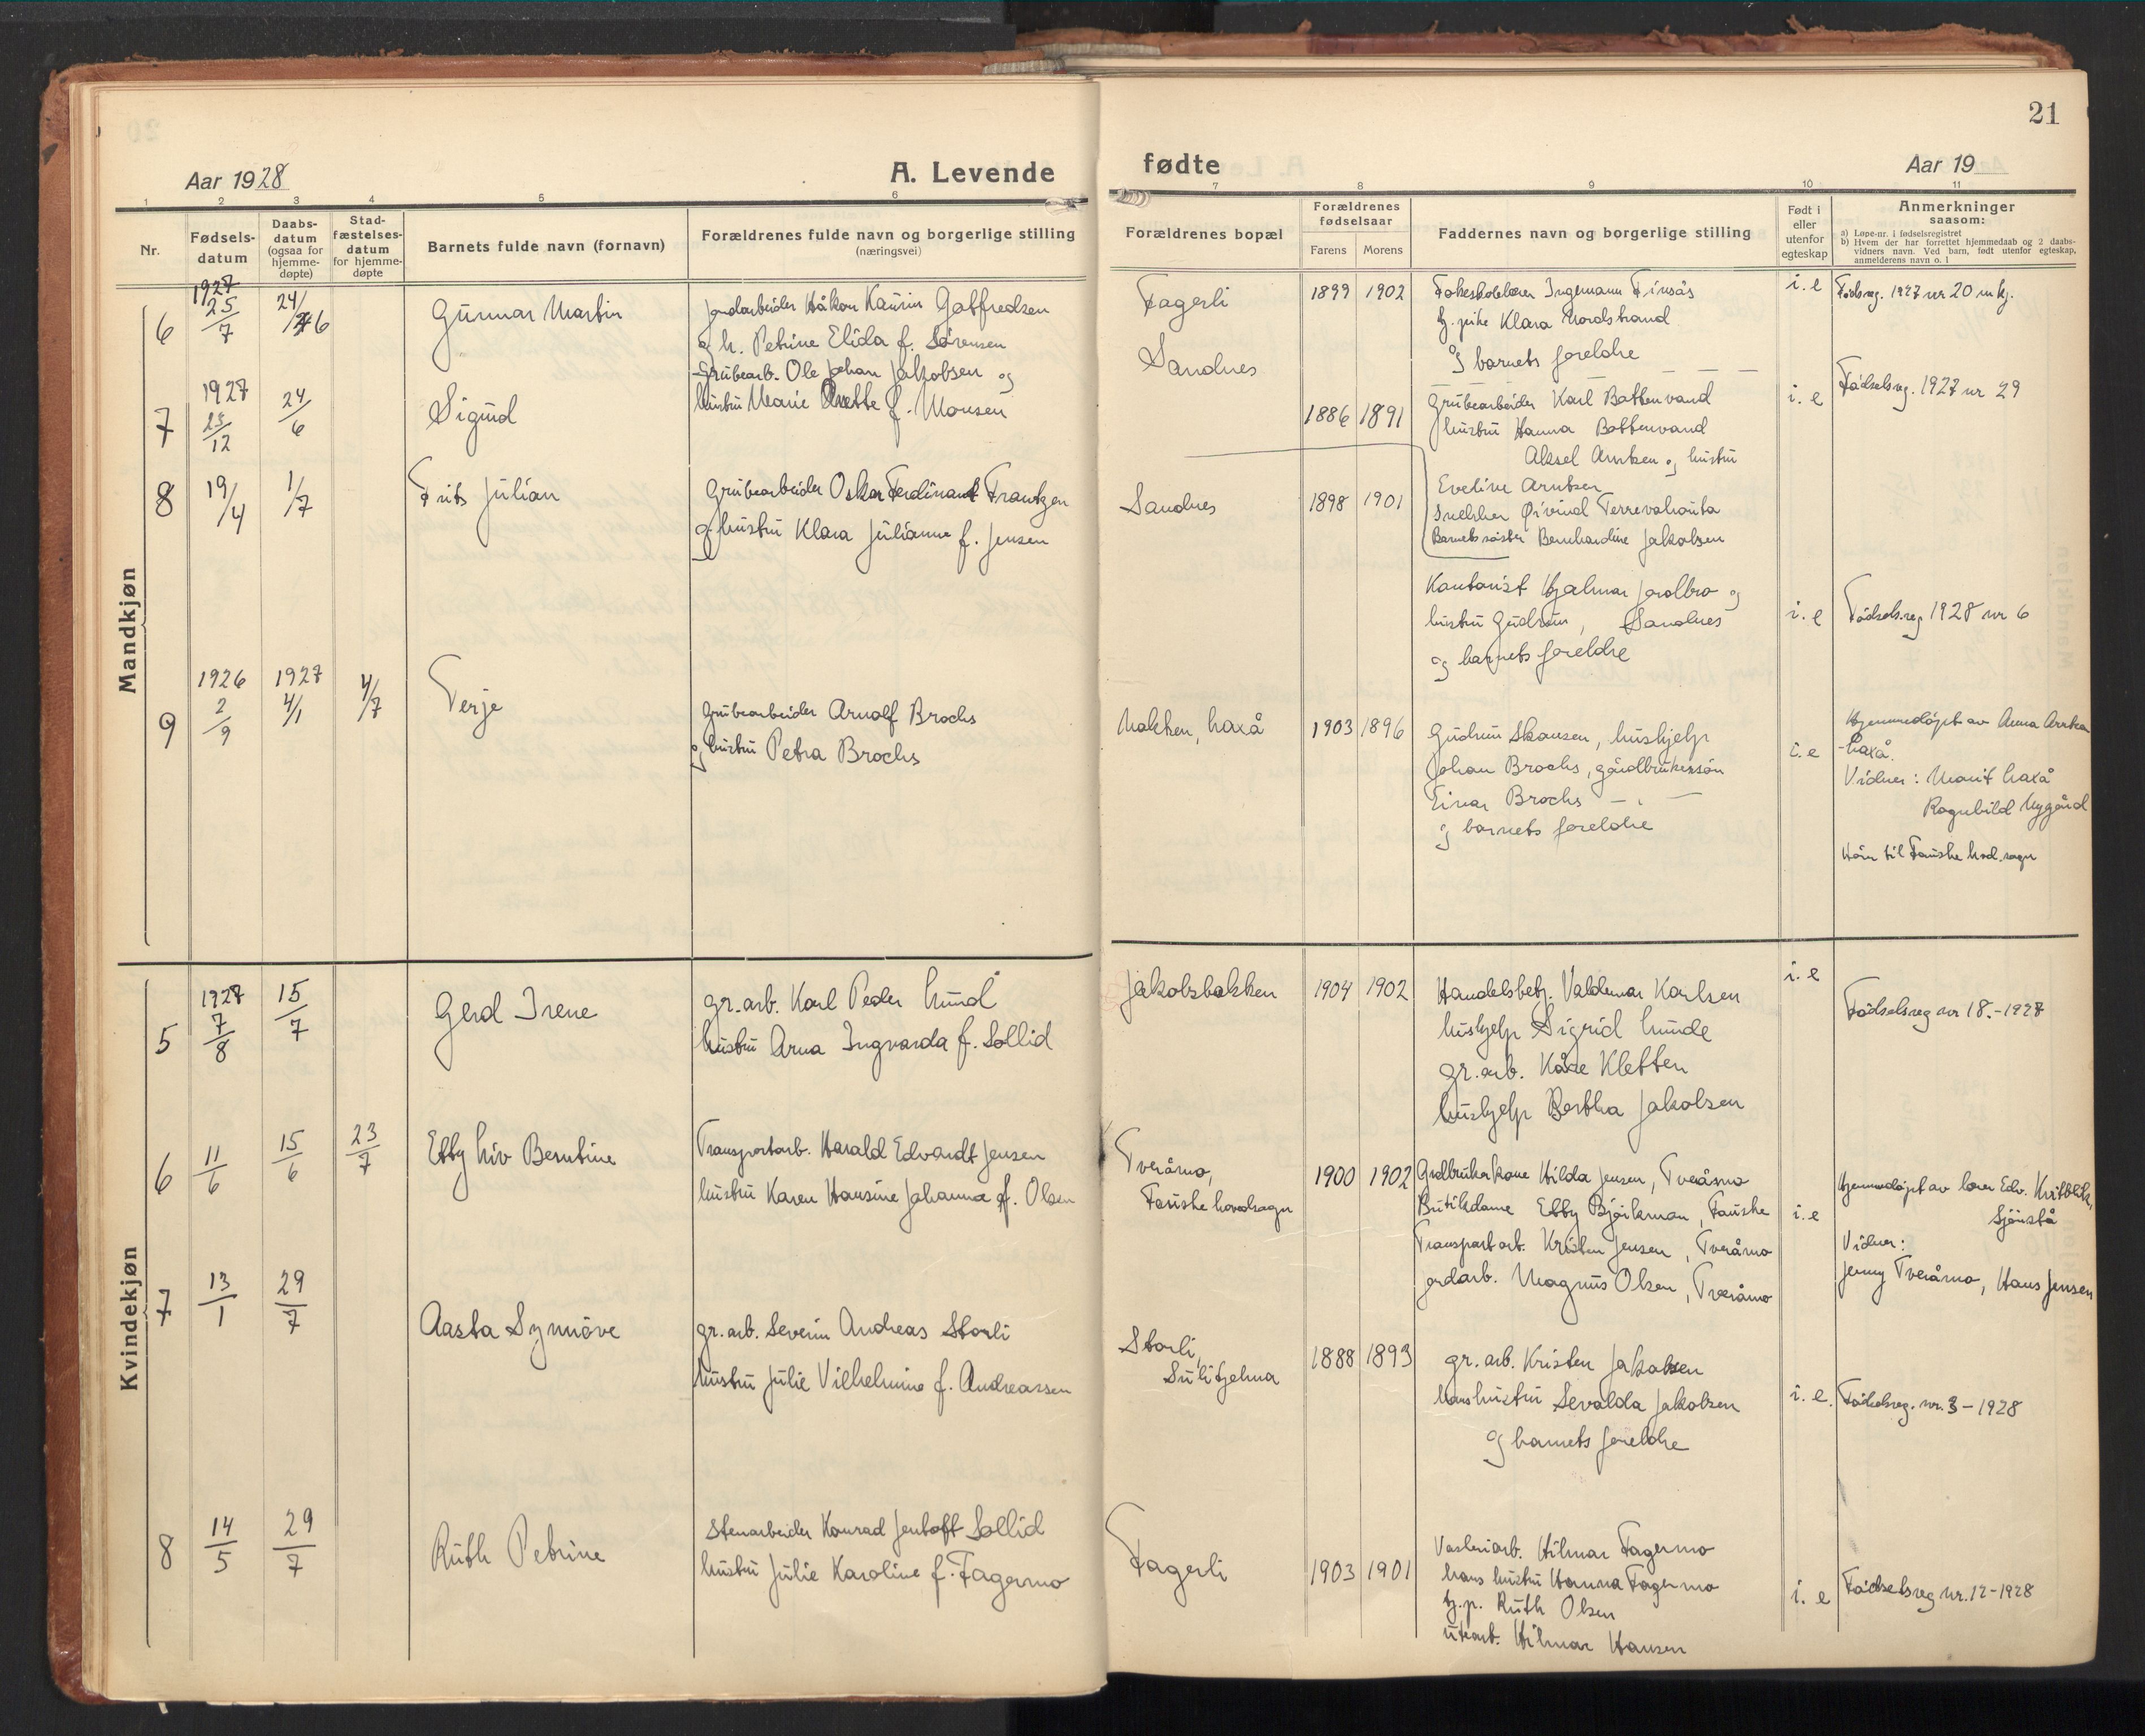 21
Aar 1928
A. Levende
fødte
Aar 19
1 2 3 4 5 6 7 8 9 10 11
Nr.
Fødsels-
datum
Daabs-
datum
(ogsaa for
hjemme-
døpte)
Stad-
fæstelses-
datum
for hjemme-
døpte
Barnets fulde navn (fornavn)
Forældrenes fulde navn og borgerlige stilling
(næringsvei)
Forældrenes bopæl
Forældrenes
fødselsaar
Farens Morens
Faddernes navn og borgerlige stilling
Født i
eller
utenfor
egteskap
Anmerkninger
saasom:
a) Løpe-nr. i fødselsregistret
b) Hvem der har forrettet hjemmedaab og 2 daabs-
vidners navn. Ved barn, født utenfor egteskap,
anmelderens navn o. l
Mandkjøn
6
1927
25/7
24/6
Gunnar Martin
jordarbeider Håkon Kaurin Gotfredsen
og h. Petrine Elida f. Sørensen
Fagerli
1899 1902
Ingemann Finsås
tj. pike Klara Nordstrand
og barnets foreldre
i. e
Fødsreg. 1927 nr 20 mkj.
7
1927
23/12
24/6
Sigurd
Grubearb. Ole Johan Jakobsen og
hustru Marie Anette f. Monsen
Sandnes
1886 1891
Grubearbeider Karl Bottenvand
hustru Hanna Bottenvand
Aksel Arntsen og hustru
Eveline Arntsen
Snekker Øivind
Barnets søster Bernhardine Jakobsen
i. e
Fødselsreg. 1927 nr 29
8
19/4
1/7
Frits Julian
Grubearbeider Oskar Ferdinant Frantzen
og hustru Klara Julianne f. Jensen
Sandnes
1898 1901
Kontorist Hjalmar Jordbro og
hustru Gudrun, Sandnes
og barnets foreldre
i. e
Fødselsreg 1928 nr 6
9
1926
2/9
1927
4/1
4/7
Terje
Grubearbeider Arnolf Brochs
og hustru Petra Brochs
Nakken, Laxå
1903 1896
Gudrun Skausen, hushjelp
Johan Brochs, gårdbrukersøn
Einar Brochs — " —
og barnets foreldre
i. e
Hjemmedøpt av Anna
Laxå.
Vidner: Marit Laxå
Ragnhild Nygård
Hører til Fauske hovd.sogn
Kvindekjøn
5
1927
7/8
15/7
Gerd Irene
gr. arb. Karl Peder Lund
hustru Arna Ingvarda f. Sollid
Jakobsbakken
1904 1902
Handelsbetj. Valdemar Karlsen
hushjelp Sigrid Lunde
gr. arb. Kåre Kletten
hushjelp Bertha Jakobsen
i. e
Fødselsreg nr 18.-1927
6
11/6
15/6
23/7
Ebby Liv Berntine
Transportarb. Harald Edvardt Jensen
hustru Karen Hansine Johanna f. Olsen
Tveråmo,
Fauske hovedsogn
1900 1902
Grdbrukerkone Hilda Jensen, Tveråmo
Butikdame Ebby Bjørkman, Fauske
Transportarb. Kristen Jensen, Tveråmo
jordarb. Magnus Olsen, Tveråmo
i. e
Hjemmedøpt av lærer Edv. Kvitblik,
Sjønstå
Vidner:
Jenny Tveråmo, Hans Jensen
7
13/1
29/7
Aasta Synnøve
gr. arb. Severin Andreas Storli
hustru Julie Vilhelmine f. Andreassen
Storli,
Sulitjelma
1888 1893
gr. arb. Kristen Jakobsen
hans hustru Sevalda Jakobsen
og barnets foreldre
i. e.
Fødselsreg. nr. 3 - 1928
8
14/5
29/7
Ruth Petrine
Stenarbeider Konrad Jentoft Sollid
hustru Julie Karoline f. Fagermo
Fagerli
1903 1901
Vaskeriarb. Hilmar Fagermo
hans hustru Hanna Fagermo
tj. p. Ruth Olsen
utearb. Hilmar Hansen
i. e
Fødselsreg nr. 12-1928